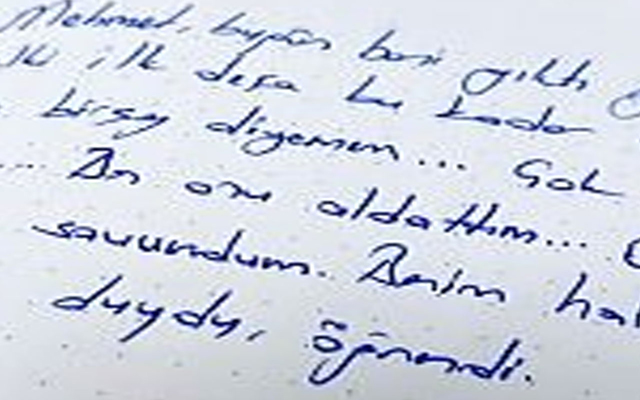 Mehmet, bugün beni yıktı
ilk defa bu kadar
birşey diyemem... Çok
... Ben onu aldattım...
savundum. Benim
duydu, öğrendi.